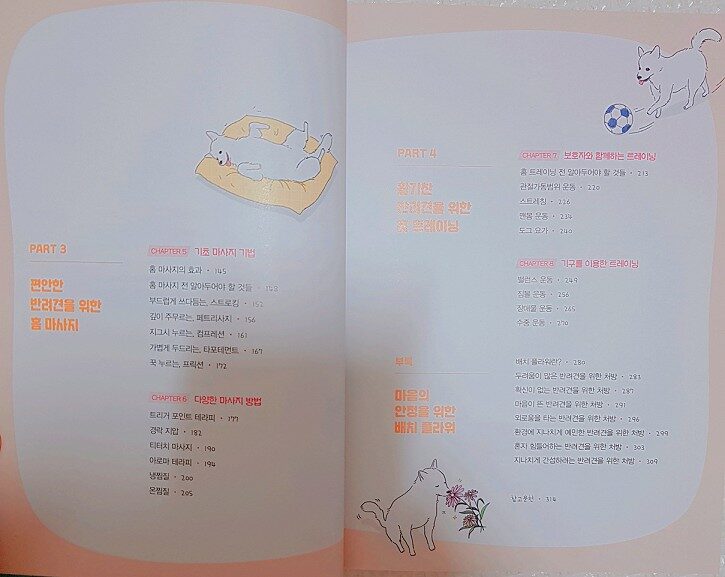 PART 3
편안한
반려견을 위한
홈 마사지
CHAPTER 5 기초 마사지 기법
홈 마사지의 효과 • 145
홈 마사지 전 알아두어야 할 것들 • 148
부드럽게 쓰다듬는, 스트로킹 • 152
깊이 주무르는, 페트리사지 • 156
지그시 누르는, 컴프레션 • 161
가볍게 두드리는, 타포테먼트 • 167
꾹 누르는, 프릭션 • 172
CHAPTER 6 다양한 마사지 방법
트리거 포인트 테라피 • 177
경락 지압 • 182
티터치 마사지 • 190
아로마 테라피 • 194
냉찜질 • 200
온찜질 • 205
PART 4
활기찬
반려견을 위한
홈 트레이닝
CHAPTER 7 보호자와 함께하는 트레이닝
홈 트레이닝 전 알아두어야 할 것들 • 213
관절가동범위 운동 • 220
스트레칭 • 226
맨몸 운동 • 234
도그 요가 • 240
CHAPTER 8 기구를 이용한 트레이닝
밸런스 운동 • 249
짐볼 운동 • 256
장애물 운동 • 265
수중 운동 • 270
부록
마음의
안정을 위한
배치 플라워
배치 플라워란? • 280
두려움이 많은 반려견을 위한 처방 • 283
확신이 없는 반려견을 위한 처방 • 287
마음이 뜬 반려견을 위한 처방 • 291
외로움을 타는 반려견을 위한 처방 • 296
환경에 지나치게 예민한 반려견을 위한 처방 • 299
혼자 힘들어하는 반려견을 위한 처방 • 303
지나치게 간섭하려는 반려견을 위한 처방 • 309
참고문헌 • 314